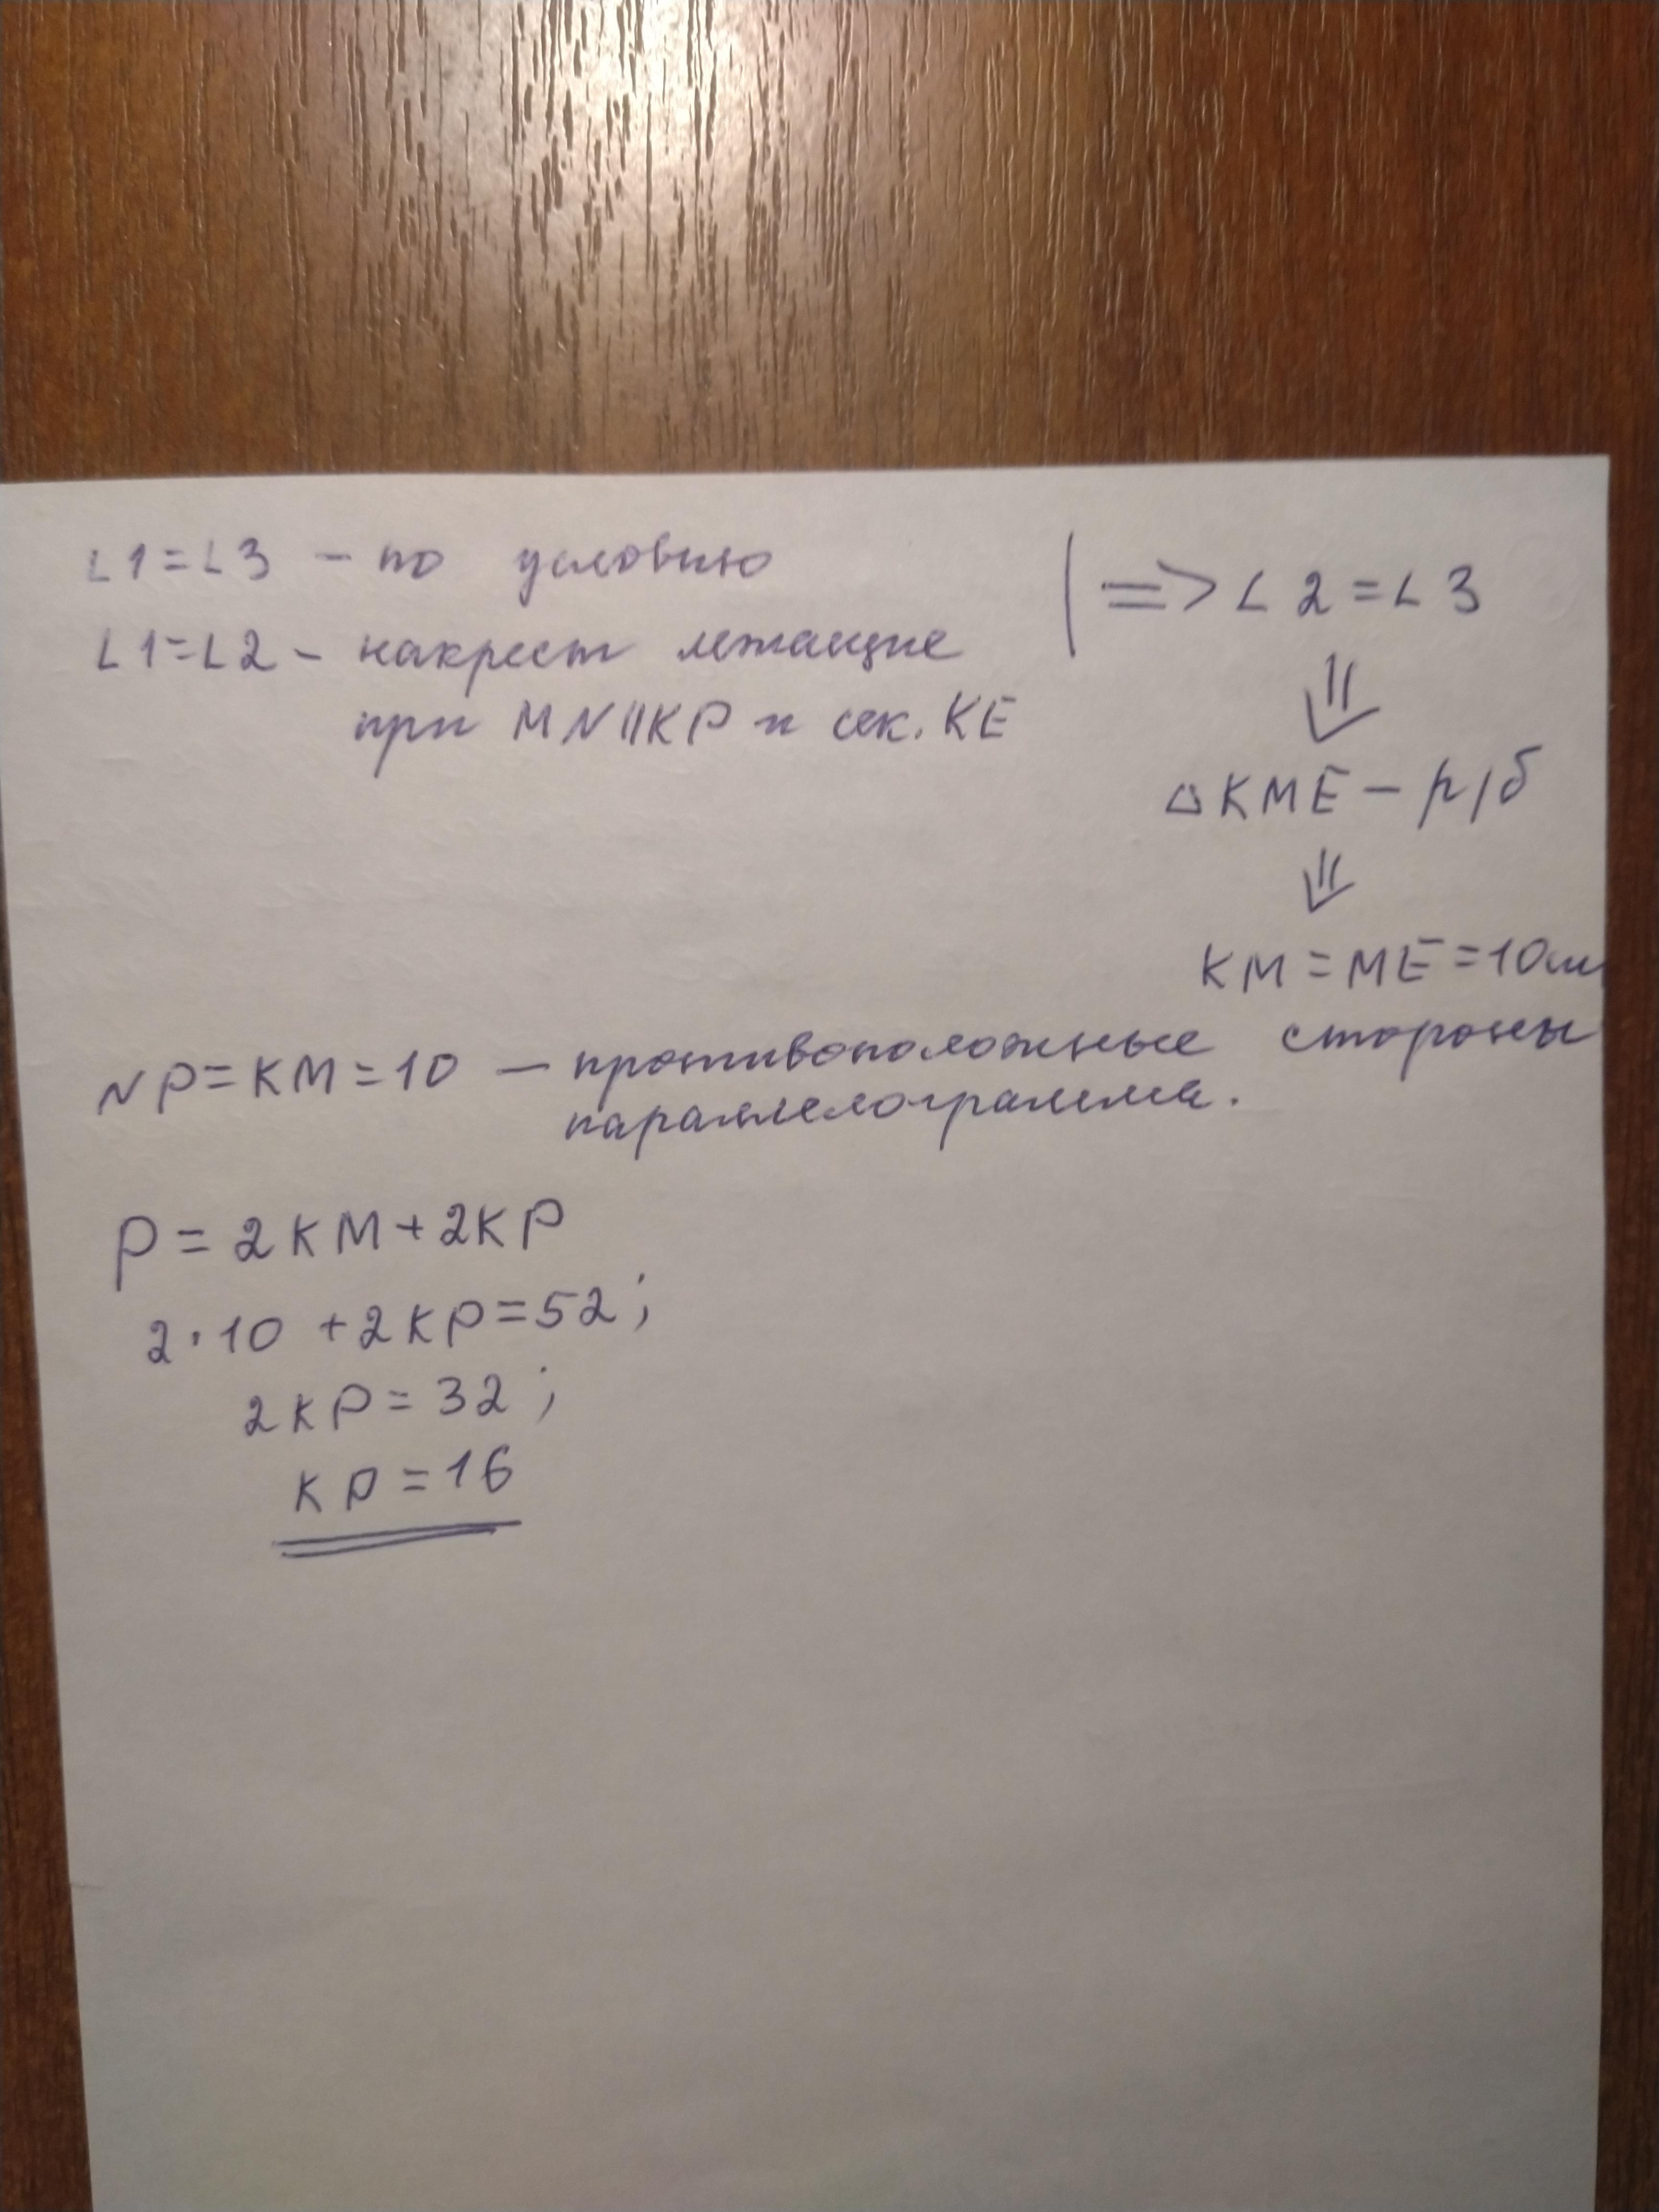 ∠1=∠3 – по условию
∠1=∠2 – накрест лежащие
при MN||KP и сек. KE
=> ∠2=∠3
⇓
△KME – р/б
⇓
KM=ME=10см
NP=KM=10 – противоположные стороны
параллелограмма.
P=2KM+2KP
2·10+2KP=52;
2KP=32;
KP=16